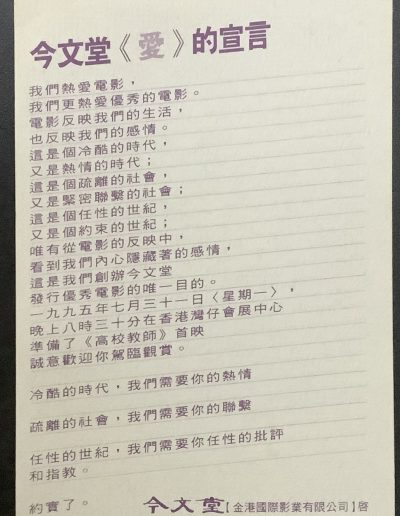 今文堂《愛》的宣言
我們熱愛電影，
我們更熱愛優秀的電影。
電影反映我們的生活，
也反映我們的感情。
這是個冷酷的時代，
又是熱情的時代；
這是個疏離的社會，
又是緊密聯繫的社會；
這是個任性的世紀，
又是個約束的世紀；
唯有從電影的反映中，
看到我們內心隱藏著的感情，
這是我們創辦今文堂
發行優秀電影的唯一目的。
一九九五年七月三十一日〈星期一〉，
晚上八時三十分在香港灣仔會展中心
準備了《高校教師》首映
誠意歡迎你駕臨觀賞。
冷酷的時代，我們需要你的熱情
疏離的社會，我們需要你的聯繫
任性的世紀，我們需要你任性的批評
和指教。
約實了。
今文堂【金港國際影業有限公司】啓